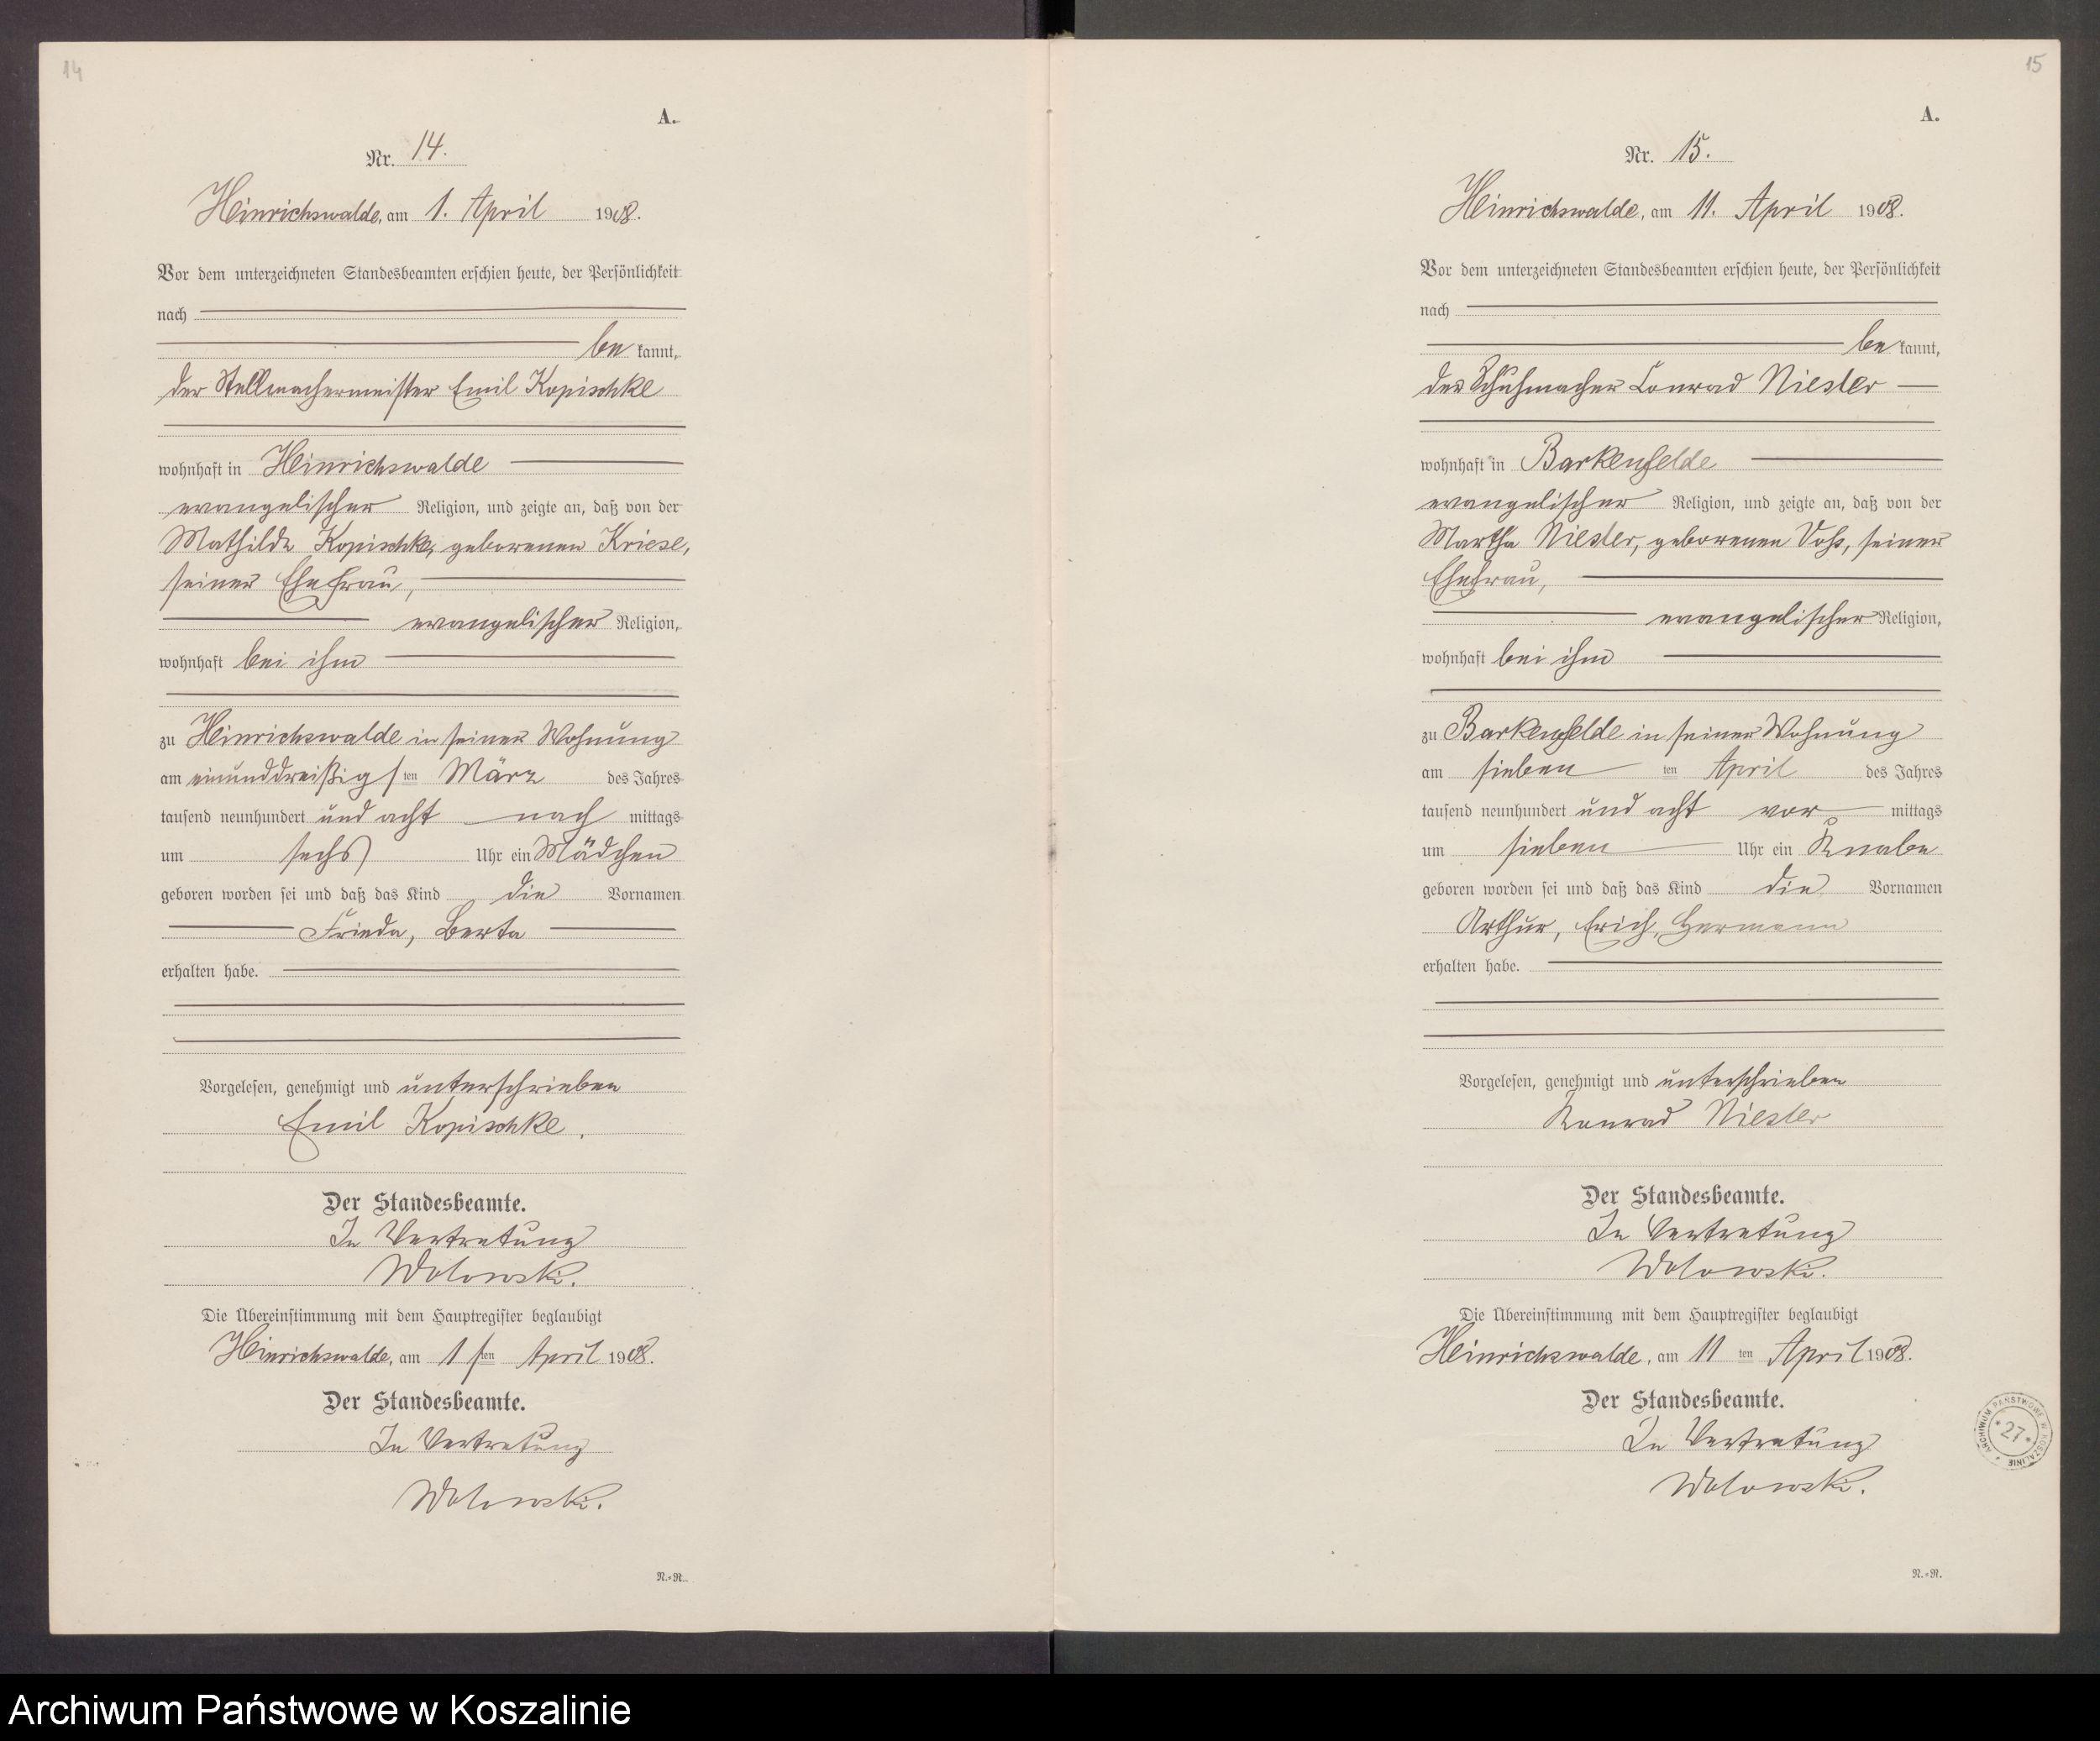 14
A.
Nr. 14.
Heinrichswalde, am 1. April 1908.
Vor dem unterzeichneten Standesbeamten erschien heute, der Persönlichkeit
nach
be kannt,
der Stellmachermeister Emil Kopischke
wohnhaft in Heinrichswalde
evangelischer Religion, und zeigte an, daß von der
Mathilde Kopischke, geborenen Kriese,
seiner Ehefrau,
evangelischer Religion,
wohnhaft bei ihm
zu Heinrichswalde in seiner Wohnung
am einunddreißigsten März des Jahres
tausend neunhundert und acht nach mittags
um sechs Uhr ein Mädchen
geboren worden sei und daß das Kind die Vornamen
Frieda, Berta
erhalten habe.
Vorgelesen, genehmigt und unterschrieben
Emil Kopischke.
Der Standesbeamte.
In Vertretung
Wolowski.
Die Übereinstimmung mit dem Hauptregister beglaubigt
Heinrichswalde, am 1sten April 1908.
Der Standesbeamte.
In Vertretung
Wolowski.
N.=R.
15
A.
Nr. 15.
Heinrichswalde, am 11. April 1908.
Vor dem unterzeichneten Standesbeamten erschien heute, der Persönlichkeit
nach
be kannt,
der Schuhmacher Conrad Niesler
wohnhaft in Barkenfelde
evangelischer Religion, und zeigte an, daß von der
Martha Niesler, geborenen Voß, seiner
Ehefrau,
evangelischer Religion,
wohnhaft bei ihm
zu Barkenfelde in seiner Wohnung
am sieben ten April des Jahres
tausend neunhundert und acht vor mittags
um sieben Uhr ein Knabe
geboren worden sei und daß das Kind die Vornamen
Arthur, Erich, Hermann
erhalten habe.
Vorgelesen, genehmigt und unterschrieben
Konrad Niesler
Der Standesbeamte.
In Vertretung
Wolowski.
Die Übereinstimmung mit dem Hauptregister beglaubigt
Heinrichswalde, am 11 ten April 1908.
Der Standesbeamte.
In Vertretung
Wolowski.
ARCHIWUM PAŃSTWOWE W KOSZALINIE
*27*
N.=R.
Archiwum Państwowe w Koszalinie